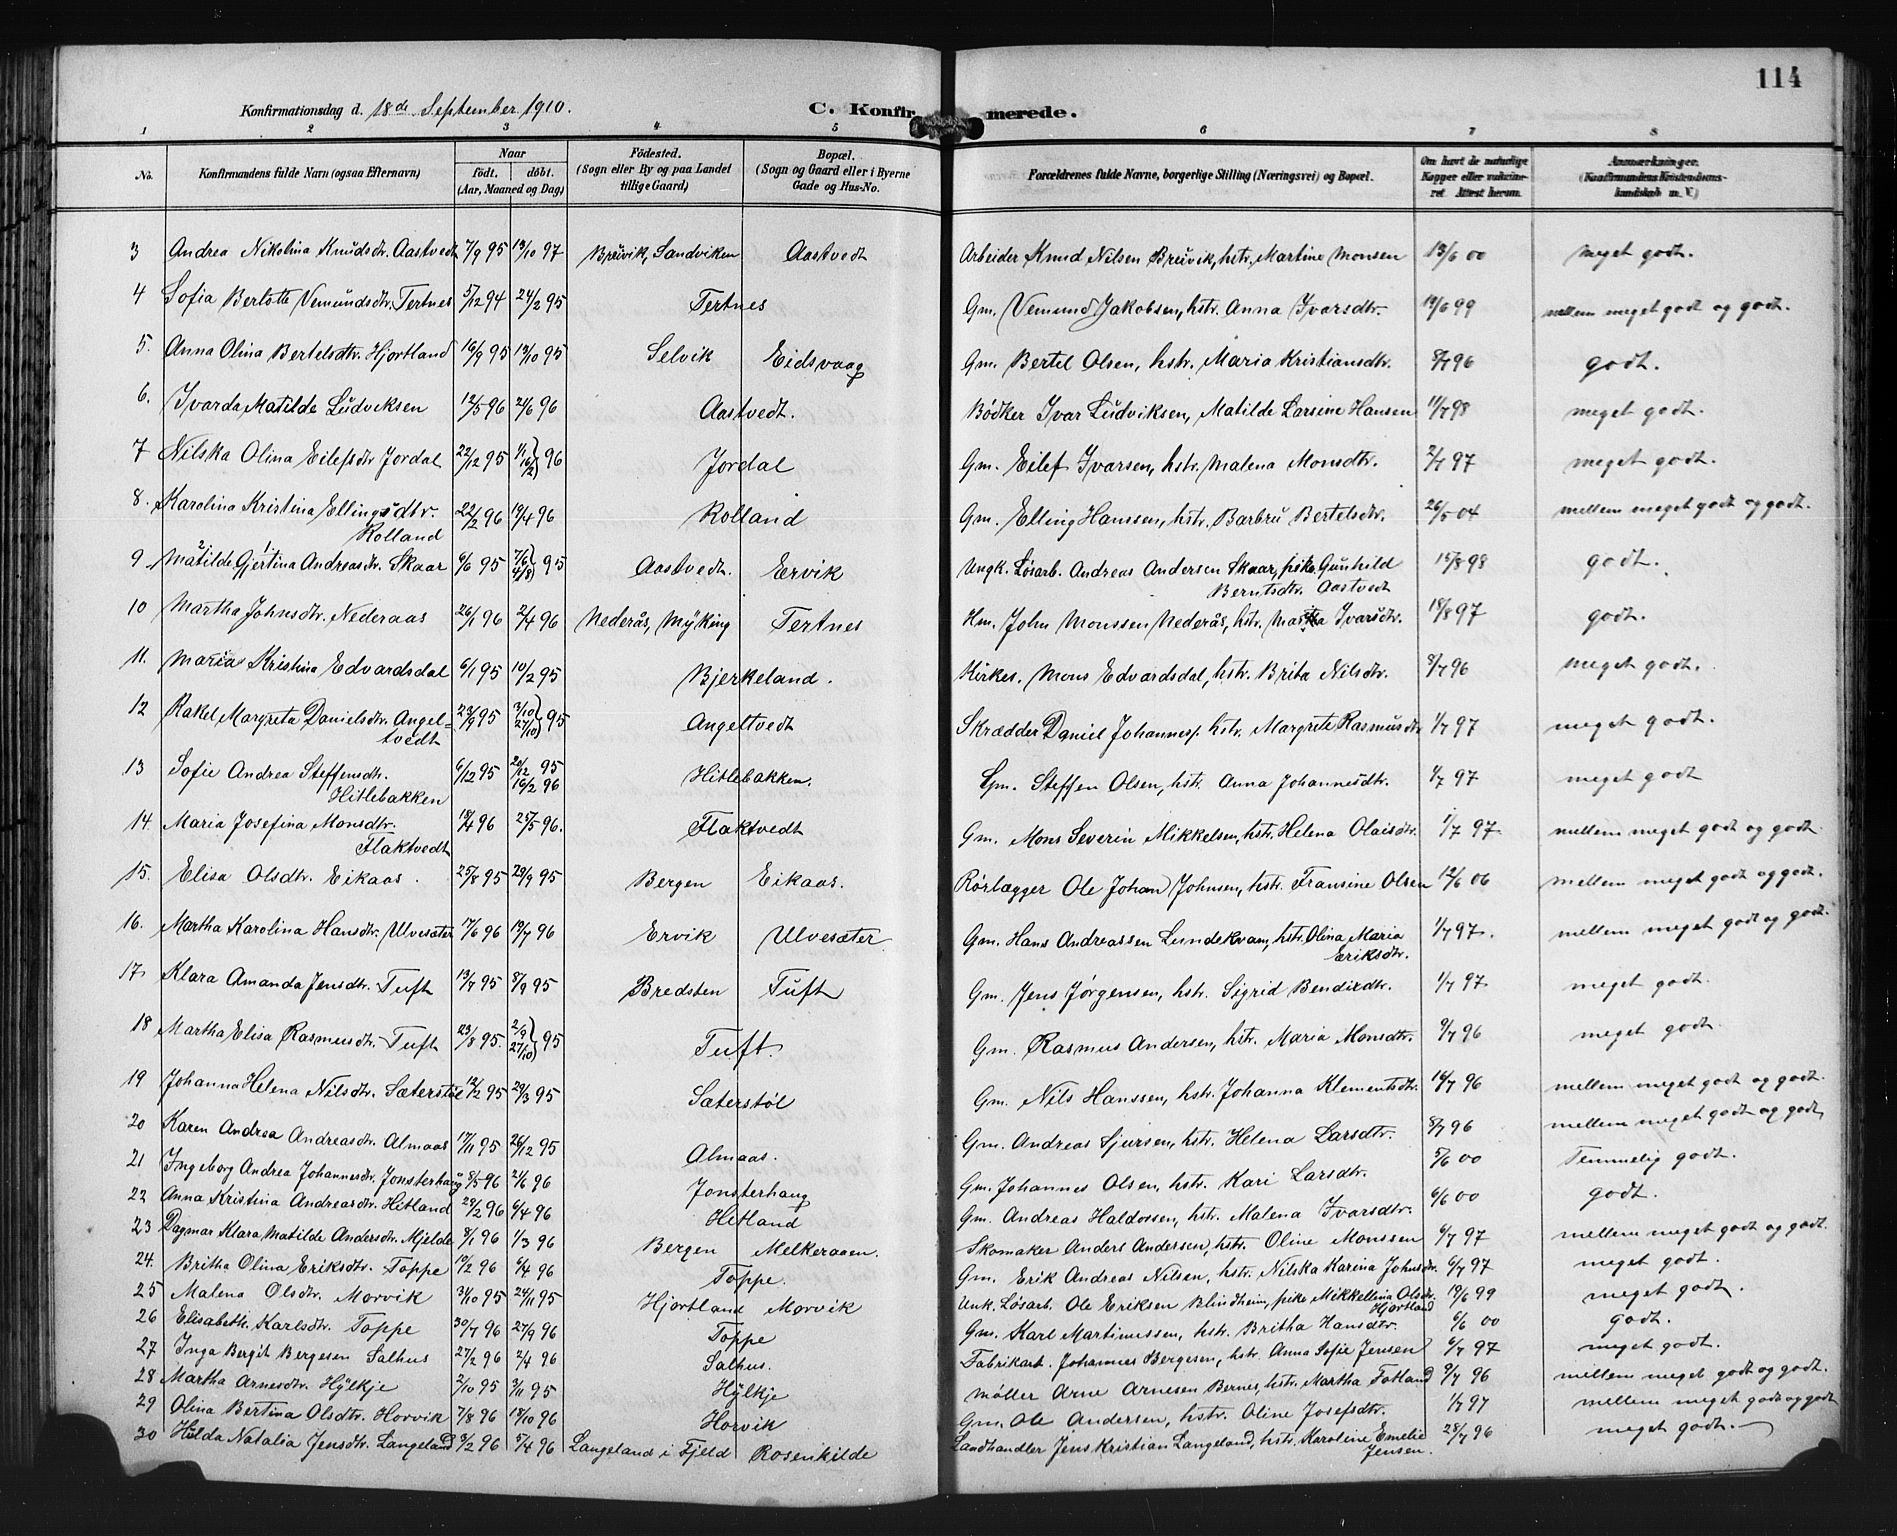 114
Konfirmationsdag d. 18de September 1910. C. Konfirmerede.
1 2 3 4 5 6 7 8
No. Konfirmandens fulde Navn (ogsaa Efternavn) Naar født. døbt. (Aar, Maaned og Dag) Fødested. (Sogn eller By og paa Landet tillige Gaard) Bopæl. (Sogn og Gaard eller i Byerne Gade og Hus-No. Forældrenes fulde Navne, borgerlige Stilling (Næringsvei) og Bopæl. Om havt de naturlige Kopper eller vaksineret. Attest herom. Anmærkninger. (Konfirmandens Kristendomskundskab m. V.)
3 Andrea Nikolina Knudsdtr. Aastvedt 7/9 95 13/10 97 Breivik, Sandviken Aastvedt Arbeider Knud Nilsen Breivik, hstr. Martine Monsen 13/6 00 meget godt.
4 Sofia Bertote Vemundsdtr. Tertnes 5/12 94 24/2 95 Tertnes Gm. Vemund Jakobsen, hstr. Anna Ivarsdtr. 19/6 99 mellem meget godt og godt.
5. Anna Olina Bertelsdtr. Hjortland 16/9 95 13/10 95 Selvik Eidsvaag Gm. Bertel Olsen, hstr. Maria Kristiansdtr. 8/7 96 godt.
6. Ivarda Matilde Ludviksen 12/5 96 21/6 96 Aastvedt. Bødker Ivar Ludviksen, Matilde Larsine Hansen 11/7 98 meget godt.
7 Nilska Olina Eilefsdtr Jordal 22/12 95 1/1 16/2) 96 Jordal Gm. Eilef Ivarsen, hstr. Malena Monsdtr. 2/7 97 meget godt.
8. Karolina Kristina Ellingsdtr. Rolland 22/2 96 19/4 96 Rolland Gm. Elling Hanssen, hstr. Barbru Bertelsdtr. 26/5 04 mellem meget godt og godt.
9. Matilde Gjertina Andreasdtr. Skaar 6/6 95 7/6 4/8) 95 Aastvedt. Ervik Ungk. Løsarb. Andreas Andersen Skaar, pike Gunhild Berntsdtr. Aastvedt 15/8 98 godt.
10 Martha Johnsdtr. Nederaas 26/1 96 2/4 96 Nederås, Myking Tertnes Hm. John Monssen Nederås, hstr. Marta Ivarsdtr. 18/8 97 godt.
11. Maria Kristina Edvardsdal 6/1 95 10/2 95 Bjerkeland. Kirkes. Mons Edvardsdal, hstr. Brita Nilsdtr. 8/7 96 meget godt.
12 Rakel Margreta Danielsdtr. Angeltvedt 23/9 95 3/10 27/10) 95 Angeltvedt Skrædder Daniel Johannes., hstr. Margrete Rasmusdtr 1/7 97 meget godt.
13 Sofie Andrea Steffensdtr. Hitlebakken 6/12 95 26/12 95 16/2 96 Hitlebakken. Gm. Steffen Olsen, hstr. Anna Johannesdtr. 1/7 97 meget godt
14 Maria Josefina Monsdtr. Flaktvedt 18/4 96 25/5 96. Flaktvedt Gm. Mons Severin Mikkelsen, hstr. Helena Olaisdtr. 1/7 97 mellem meget godt og godt.
15. Elisa Olsdtr. Eikaas. 25/8 95 29/9 95 Bergen Eikaas. Rørlægger Ole Johan Johnsen, hstr. Fransine Olsen 12/6 06 mellem meget godt og godt.
16. Martha Karolina Hansdtr. Ulvesæter 17/6 96 19/7 96 Ervik Ulvesæter Gm. Hans Andreassen Lundekvam, hstr. Olina Maria Eriksdtr. 1/7 97. mellem meget godt og godt.
17 Klara Amanda Jensdtr. Tuft 13/7 95 8/9 95 Bredsten Tuft Gm. Jens Jørgensen, hstr. Sigrid Bendixdtr. 1/7 97 meget godt.
18 Martha Elisa Rasmusdtr. Tuft 23/8 95. 2/9 27/10) 95 Tuft. Gm. Rasmus Andersen, hstr. Maria Monsdtr. 9/7 96 meget godt.
19 Johanna Helena Nilsdtr. Sæterstøl 12/2 95 29/3 95 Sæterstøl Gm. Nils Hanssen, hstr. Johanna Klementsdtr. 16/7 96 mellem meget godt og godt.
20 Karen Andrea Andreasdtr. Almaas 17/11 95 26/12 95 Almaas. Gm. Andreas Sjursen, hstr. Helena Larsdtr. 8/7 96 mellem meget godt og godt,
21 Ingeborg Andrea Johannesdtr. Jonsterhaug 8/5 96 21/6 96 Jonsterhaug Gm. Johannes Olsen, hstr. Kari Larsdtr. 5/6 00 Temmelig godt.
22 Anna Kristina Andreasdtr. Hitland 29/2 96 6/4 96 Hitland Gm. Andreas Haldorsen, hstr. Malena Ivarsdtr. 6/6 00 godt.
23 Dagmar Klara Matilde Andersdtr. Mjelde 8/1 96 1/3 96 Bergen Melkeraaen. Skomaker Anders Andersen, hstr. Oline Monssen 6/7 97 mellem meget godt og godt.
24. Britha Olina Eriksdtr. Toppe 19/2 96 6/4 96 Toppe. Gm. Erik Andreas Nilsen, hstr. Nilska Karina Johnsdtr. 6/7 97 meget godt.
25 Malena Olsdtr. Morvik 31/10 95 24/11 95 Hjortland Morvik Unk. Løsarb. Ole Eriksen Blindheim, pike Mikkelina Olsdtr. Hjortland 19/6 99 meget godt.
26 Elisabeth Karlsdtr. Toppe 30/7 96 27/9 96 Toppe Gm. Karl Martinussen, hstr. Britha Hansdtr. 6/6 00 godt.
27 Inga Bergit Bergesen Salhus 27/2 96 2/4 96 Salhus. Fabrikarb. Johannes Bergesen, hstr. Anna Sofie Jensen 6/7 97 meget godt.
28 Martha Arnesdtr. Hylkje 2/10 95 3/11 95 Hylkje Møller Arne Arnesen Bernes, hstr. Martha Fotland 9/7 96 mellem meget godt og godt.
29 Olina Bertina Olsdtr. Horvik 7/8 96 18/10 96 Horvik Gm. Ole Andersen, hstr. Oline Josefsdtr. 1/7 97 mellem meget godt og godt
30 Hilda Natalia Jensdtr. Langeland 3/2 96 5/4 96 Langeland i Fjeld Rosenkilde Landhandler Jens Kristian Langeland, hstr. Karoline Emelie Jensen. 28/7 96 meget godt.